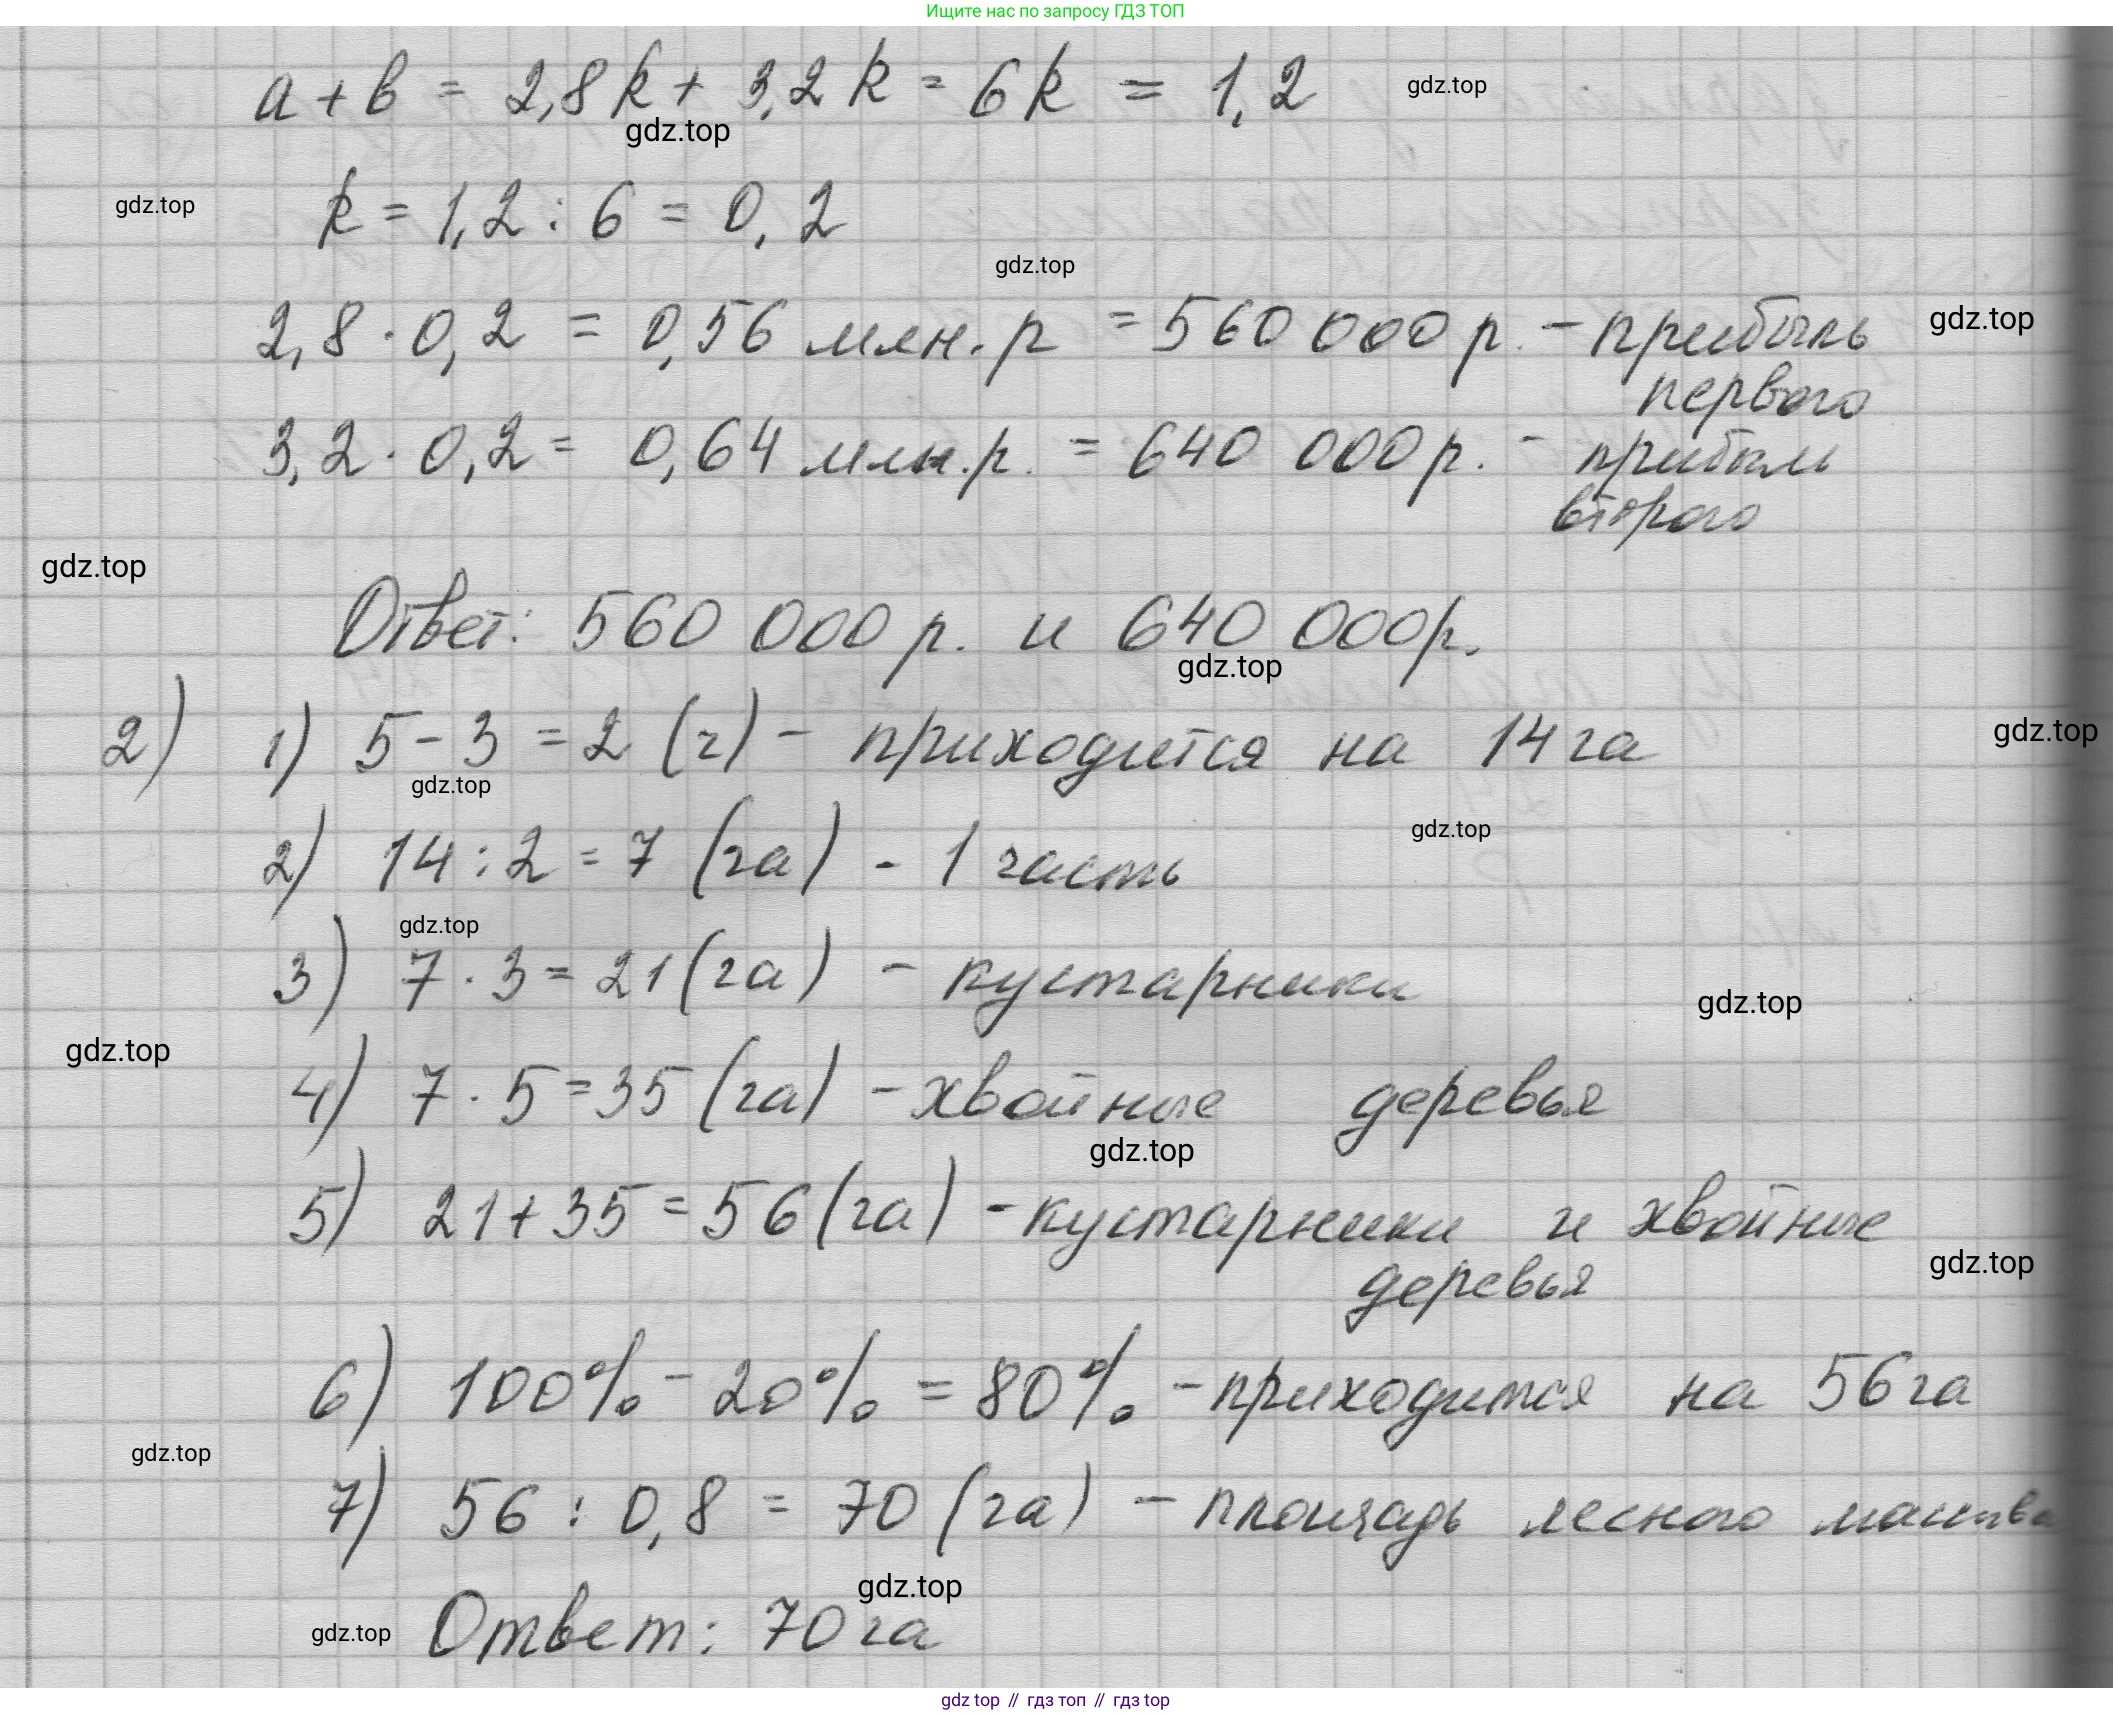 Ищите нас по запросу ГДЗ ТОП
a + b = 2,8k + 3,2k = 6k = 1,2
gdz.top
gdz.top
gdz.top
k = 1,2 : 6 = 0,2
gdz.top
2,8 · 0,2 = 0,56 млн. р = 560 000 р. - прибыль
gdz.top
первого
3,2 · 0,2 = 0,64 млн. р. = 640 000 р. - прибыль
второго
gdz.top
Ответ: 560 000 р. и 640 000 р.
gdz.top
2) 1) 5 - 3 = 2 (ч) - приходится на 14 га
gdz.top
gdz.top
2) 14 : 2 = 7 (га) - 1 часть
gdz.top
gdz.top
3) 7 · 3 = 21 (га) - кустарники
gdz.top
gdz.top
4) 7 · 5 = 35 (га) - хвойные деревья
gdz.top
5) 21 + 35 = 56 (га) - кустарники и хвойные
деревья
gdz.top
6) 100% - 20% = 80% - приходится на 56 га
gdz.top
7) 56 : 0,8 = 70 (га) - площадь лесного массива
gdz.top
Ответ: 70 га
gdz.top
gdz top // гдз топ // гдз top